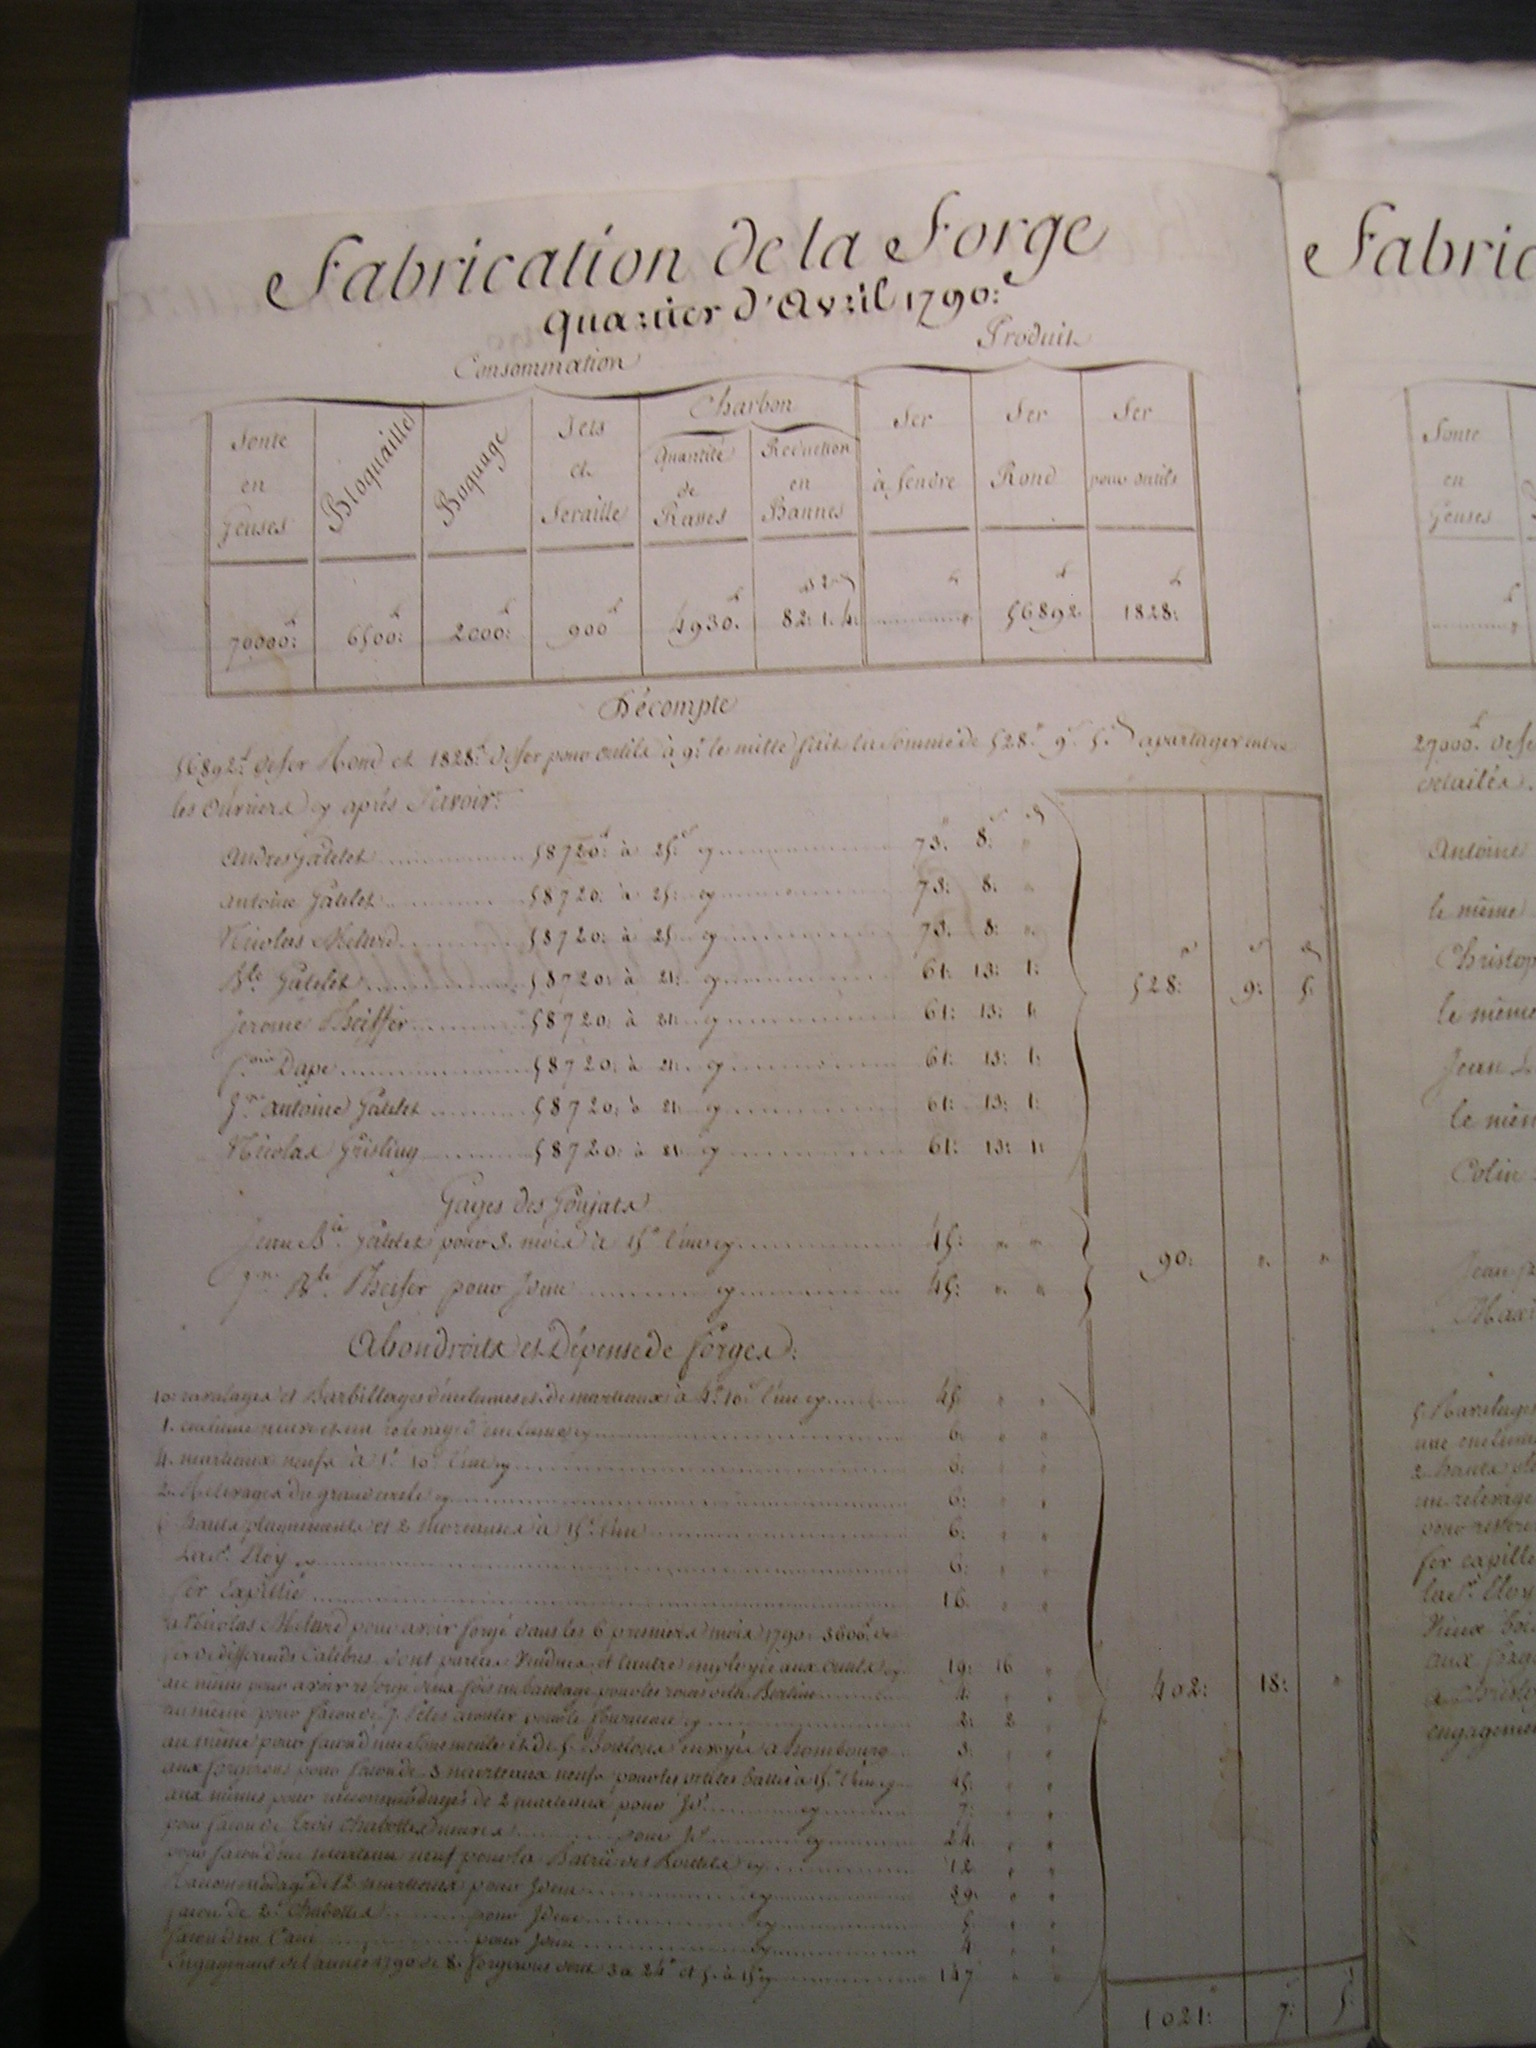 Fabrication de la Forge
quartier d'Avril 1790:
Consommation
Produit
Fonte en Geuses
Bloquaille
Boquage
Jets et Feraille
Charbon
Quantité de Rasses
Reduction en Bannes
Fer à fendre
Fer Rond
Fer pour outils
70000: 6500: 2000: 900 4930. 82: 1. 4: 56892 1828:
Décompte
56892. de fer Rond et 1828. de fer pour outils à 9. le mille fait la somme de 528. 9. 5. a partager entre
les Ouvriers cy aprés Savoir:
Andres Gatelet 58720: à 25: cy 73: 8:
Antoine Gatelet 58720: à 25: cy 73: 8:
Nicolas 58720: à 25: cy 73. 8:
Bte Gatelet 58720: à 21: cy 61: 13: 1:
528: 9: 5.
Jerome Theiffer 58720: à 21: cy 61: 13: 1:
Dape 58720: à 21: cy 61: 13: 1:
Antoine Gatelet 58720: à 21: cy 61: 13: 1:
Nicolas Grisling 58720: à 21: cy 61: 13: 1:
Gages des Goujats
Jean Bte Gatelet pour 3. mois à 15 l'un cy 45:
90:
Bte Theifer pour Idem cy 45:
Abondroits et Dépense de forges:
10: ravalages et Barbillages d'enclumes et de marteaux à 4. 10. l'une cy 45:
1. enclume neuve et un relevage d'enclume cy 6:
4. marteaux neufs à 1. 10. l'un cy 6:
2. Relevages du grand cercle cy 6:
hauts et 2 à 15. l'un 6:
La St. Eloy cy 6:
fer Expillié 16.
a Nicolas pour avoir forgé dans les 6 premiers mois 1790. 3600. de
fer de differends Calibres dont partie Vendue et l'autre employée aux Outils cy 19: 16
au même pour avoir reforgé deux fois un bandage pour les roues de la Berline 4:
402: 18:
au même pour façon de 7. pour le fourneau cy 2: 2
au même pour façon d'une et de 5. Boulons envoyés a hombourg 3:
aux forgerons pour façon de 3 marteaux neufs pour les petites battes à 15. l'un cy 45:
aux mêmes pour raccommodages de 2 marteaux pour Id. cy 7:
pour façon de trois Chabottes neuves pour Id. cy 24:
pour façon d'un marteau neuf pour la Batrie des Boutets cy 12
Raccommodage de 12 marteaux pour Idem cy 39:
façon de 2. Chabottes pour Idem cy 5.
façon d'un Cane pour Idem cy 4
Engagement de l'année 1790 de 8. forgerons dont 3 à 24 et 5. à 15 cy 147
1021: 7: 5.
Fabric
Fonte en Geuses
27000. de fe
détailés.
Antoine
le même
Christop
le même
Jean
le mêm
Colin
Jean
Maxi
5. Ravalages
une enclume
2. hauts
un relevage
pour
fer expillé
la St. Eloy
Vieux
aux forge
a Christo
engagemen